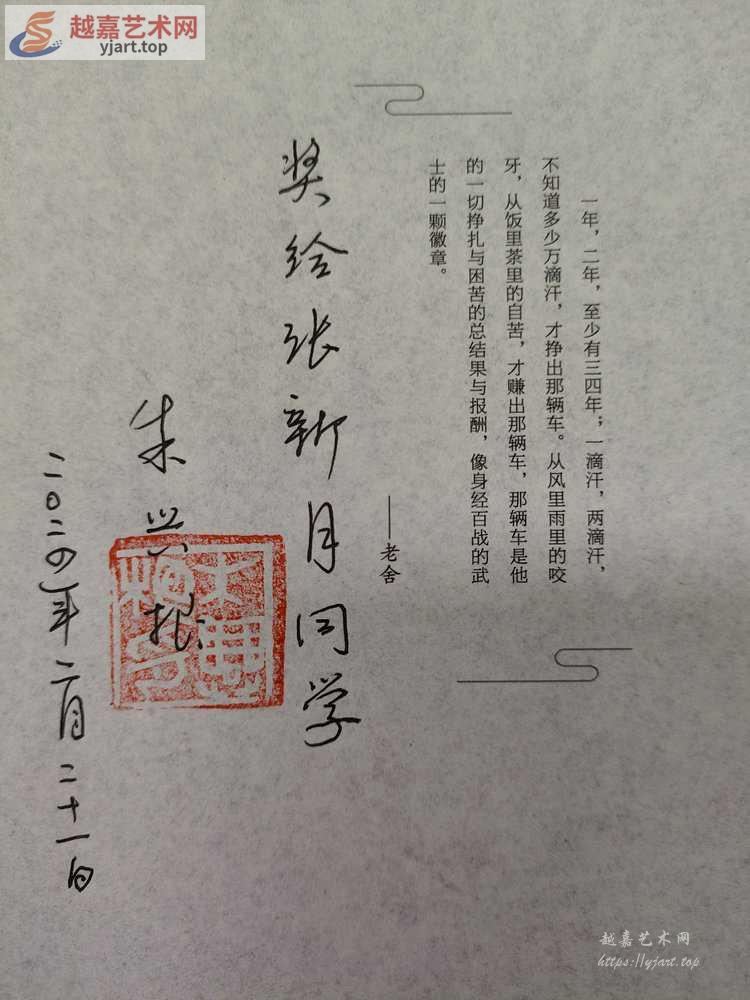 越嘉艺术网
yjart.top
一年，二年，至少有三四年；一滴汗，两滴汗，
不知道多少万滴汗，才挣出那辆车。从风里雨里的咬
牙，从饭里茶里的自苦，才赚出那辆车，那辆车是他
的一切挣扎与困苦的总结果与报酬，像身经百战的武
士的一颗徽章。
——老舍
奖给张新月同学
朱兴根
二〇二四年二月二十一日
越嘉艺术网
https://yjart.top